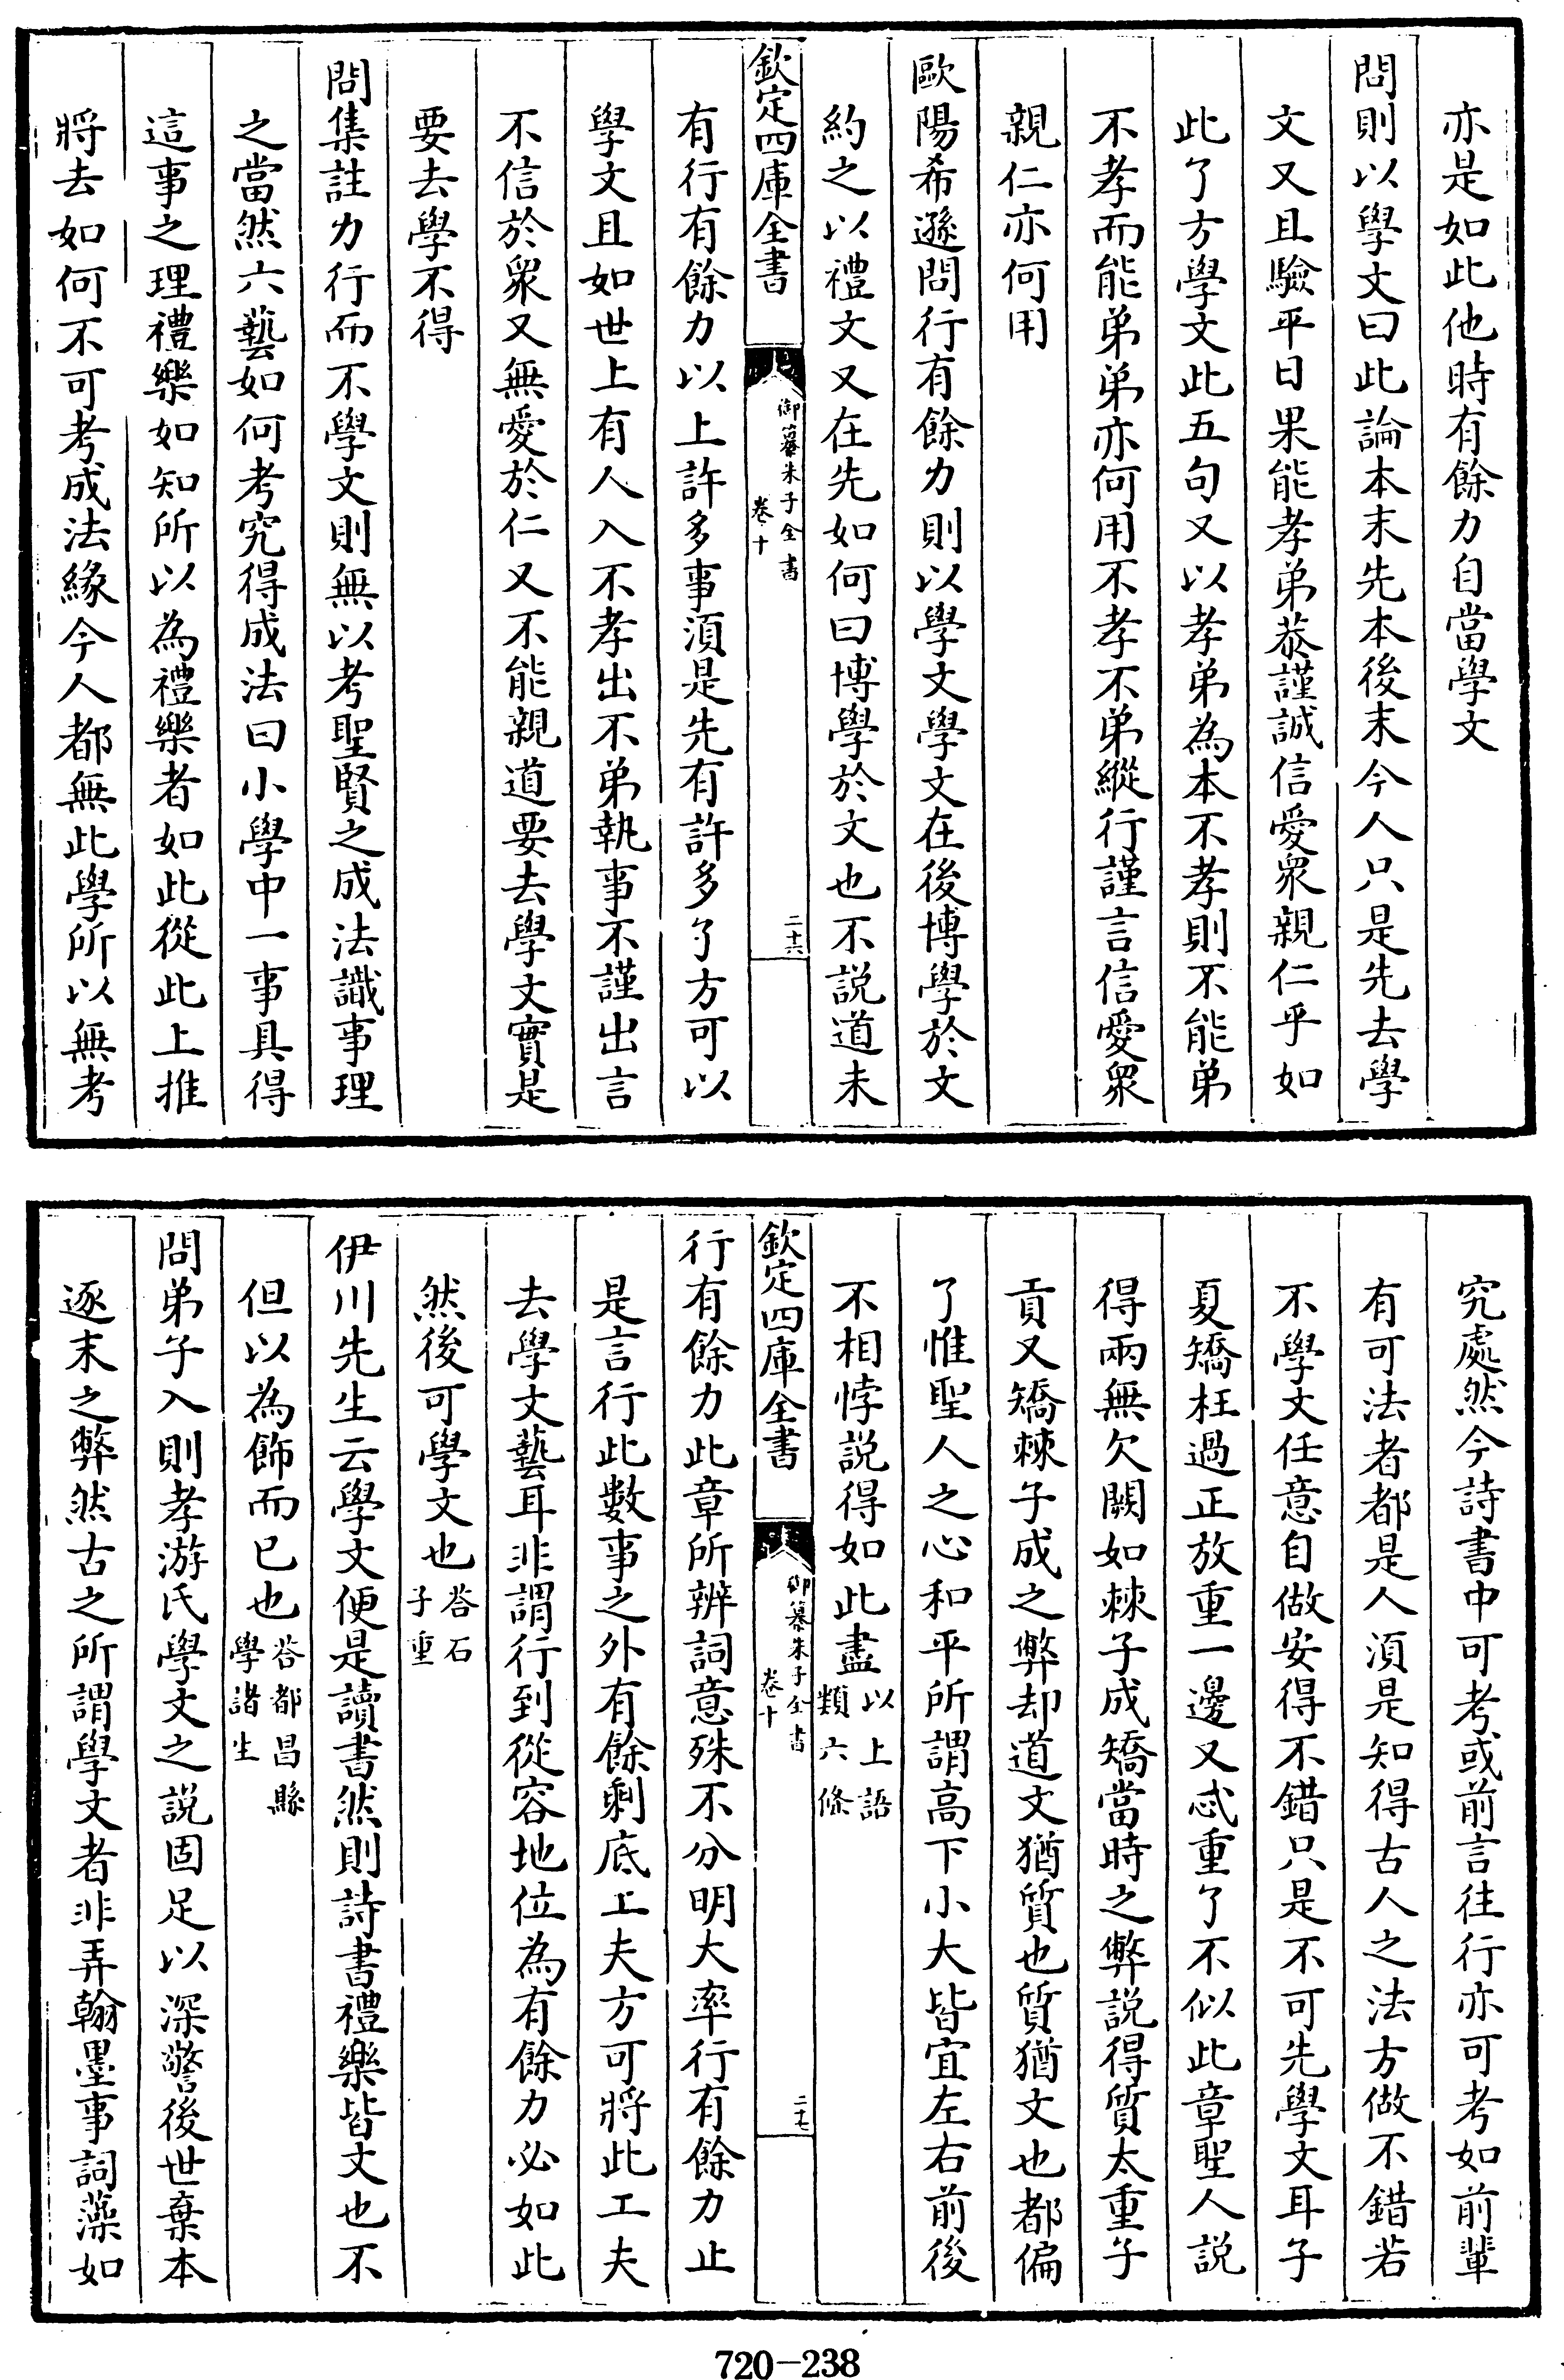 亦是如此他時有餘力自當學文
問則以學文曰此論本末先本後末今人只是先去學
文又且驗平日果能孝弟恭謹誠信愛衆親仁乎如
此了方學文此五句又以孝弟為本不孝則不能弟
不孝而能弟弟亦何用不孝不弟縱行謹言信愛衆
親仁亦何用
歐陽希遜問行有餘力則以學文學文在後博學於文
約之以禮文又在先如何曰博學於文也不説道未
欽定四庫全書
御纂朱子全書
卷十
二十六
有行有餘力以上許多事須是先有許多了方可以
學文且如世上有人入不孝出不弟執事不謹出言
不信於衆又無愛於仁又不能親道要去學文實是
要去學不得
問集註力行而不學文則無以考聖賢之成法識事理
之當然六藝如何考究得成法曰小學中一事具得
這事之理禮樂如知所以為禮樂者如此從此上推
將去如何不可考成法緣今人都無此學所以無考
究處然今詩書中可考或前言往行亦可考如前輩
有可法者都是人須是知得古人之法方做不錯若
不學文任意自做安得不錯只是不可先學文耳子
夏矯枉過正放重一邊又忒重了不似此章聖人説
得兩無欠闕如棘子成矯當時之弊説得質太重子
貢又矯棘子成之弊却道文猶質也質猶文也都偏
了惟聖人之心和平所謂高下小大皆宜左右前後
不相悖説得如此盡以上語類六條
欽定四庫全書
御纂朱子全書
卷十
二十七
行有餘力此章所辨詞意殊不分明大率行有餘力止
是言行此數事之外有餘剩底工夫方可將此工夫
去學文藝耳非謂行到從容地位為有餘力必如此
然後可學文也荅石子重
伊川先生云學文便是讀書然則詩書禮樂皆文也不
但以為飾而已也荅都昌縣學諸生
問弟子入則孝游氏學文之説固足以深警後世棄本
逐末之弊然古之所謂學文者非弄翰墨事詞藻如
720-238